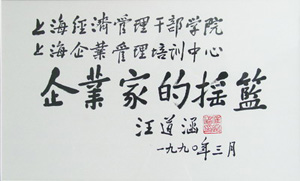 上海經濟管理干部学院
上海企業管理培训中心
企業家的摇籃
汪道涵
一九九〇年三月